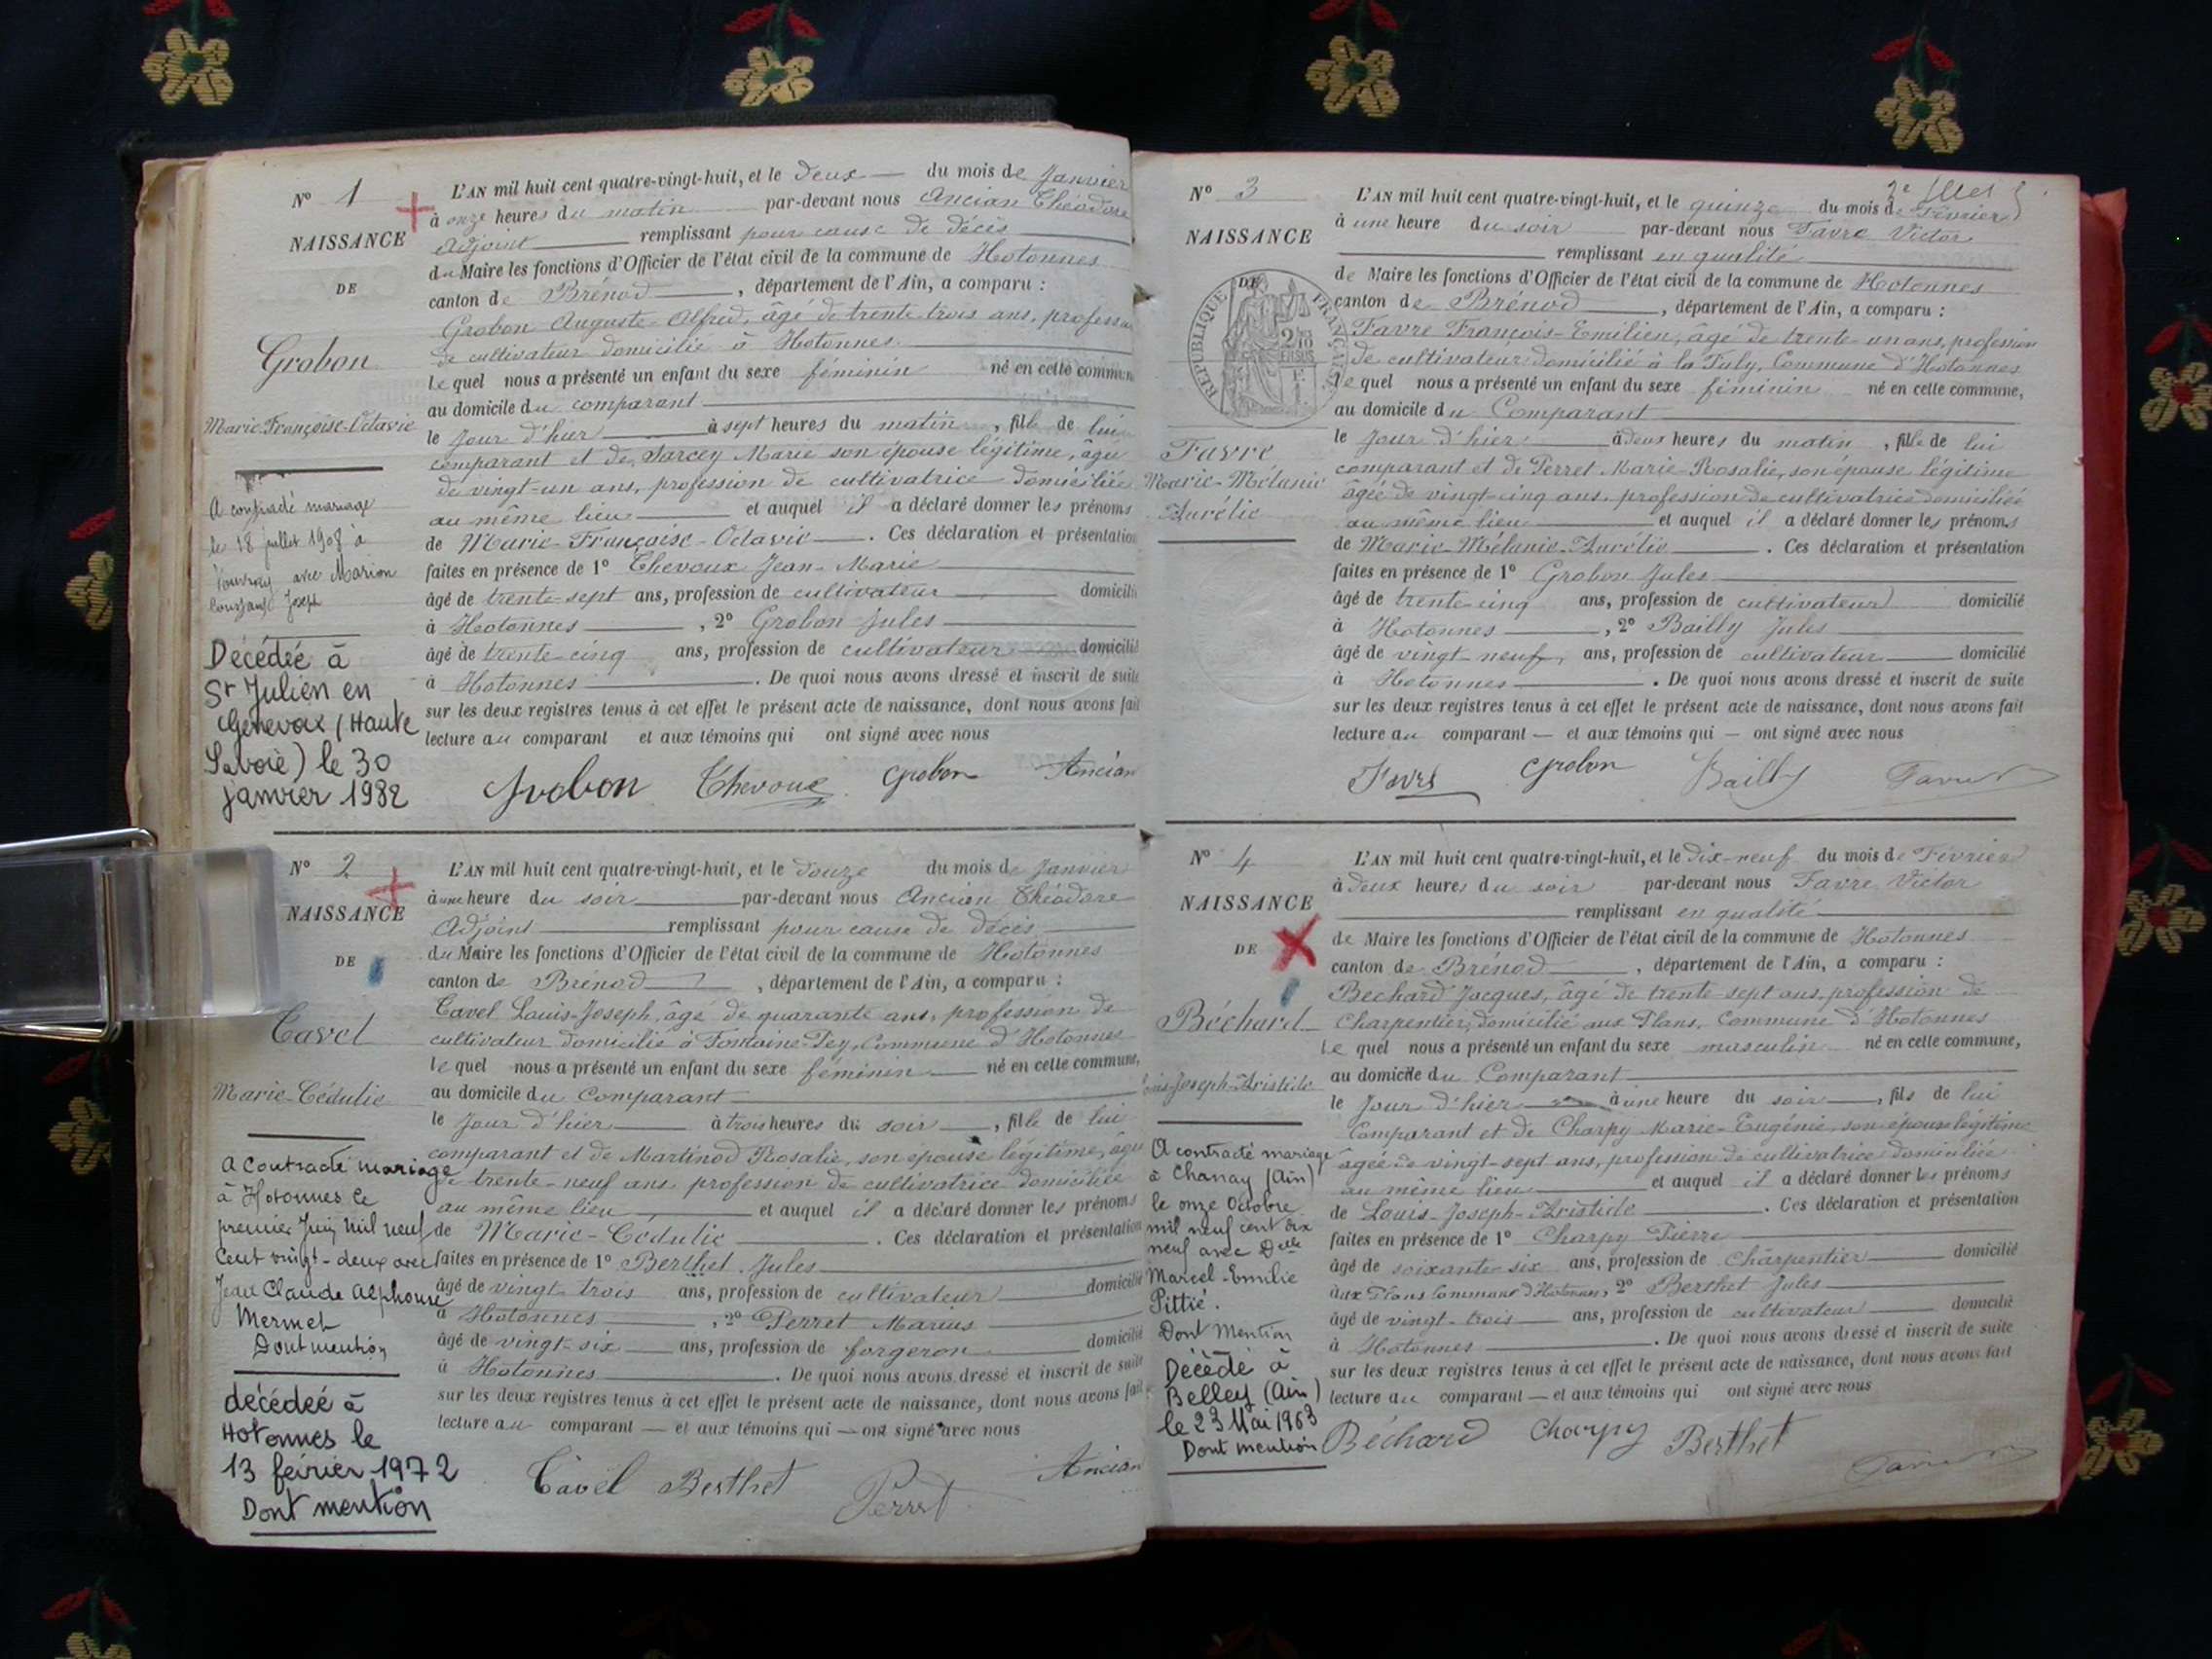 N° 1
NAISSANCE
DE
Grobon
Marie-Françoise-Octavie
A contracté mariage
le 18 juillet 1908 à
avec Marion
Joseph
Décédée à
St Julien en
Genevois (Haute
Savoie) le 30
janvier 1982
L'AN mil huit cent quatre-vingt-huit, et le deux du mois de Janvier
à onze heures du matin par-devant nous Ancian Théodore
Adjoint remplissant pour cause de décès
du Maire les fonctions d'Officier de l'état civil de la commune de Hotonnes
canton de Brénod, département de l'Ain, a comparu :
Grobon Auguste-Alfred, âgé de trente trois ans, profession
de cultivateur domicilié à Hotonnes
lequel nous a présenté un enfant du sexe féminin né en cette commune
au domicile du comparant
le jour d'hier à sept heures du matin, fille de lui
comparant et de Marie son épouse légitime, âgée
de vingt-un ans, profession de cultivatrice domiciliée
au même lieu et auquel il a déclaré donner les prénoms
de Marie-Françoise-Octavie. Ces déclaration et présentation
faites en présence de 1° Thevoux Jean-Marie
âgé de trente-sept ans, profession de cultivateur domicilié
à Hotonnes, 2° Grobon Jules
âgé de trente-cinq ans, profession de cultivateur domicilié
à Hotonnes. De quoi nous avons dressé et inscrit de suite
sur les deux registres tenus à cet effet le présent acte de naissance, dont nous avons fait
lecture au comparant et aux témoins qui ont signé avec nous
Grobon Thevoux Grobon Ancian
N° 2
NAISSANCE
DE
Cavel
Marie-Cédulie
A contracté mariage
à Hotonnes le
premier Juin mil neuf
cent vingt-deux avec
Jean Claude Alphonse
Mermet
Dont mention
décédée à
Hotonnes le
13 février 1972
Dont mention
L'AN mil huit cent quatre-vingt-huit, et le douze du mois de Janvier
à une heure du soir par-devant nous Ancian Théodore
Adjoint remplissant pour cause de décès
du Maire les fonctions d'Officier de l'état civil de la commune de Hotonnes
canton de Brénod, département de l'Ain, a comparu :
Cavel Louis-Joseph, âgé de quarante ans, profession de
cultivateur domicilié à Fontaine-Pey, Commune d'Hotonnes
lequel nous a présenté un enfant du sexe féminin né en cette commune,
au domicile du Comparant
le jour d'hier à trois heures du soir, fille de lui
comparant et de Martinod Rosalie, son épouse légitime, âgée
de trente-neuf ans profession de cultivatrice domiciliée
au même lieu et auquel il a déclaré donner les prénoms
de Marie-Cédulie. Ces déclaration et présentation
faites en présence de 1° Berthet Jules
âgé de vingt-trois ans, profession de cultivateur domicilié
à Hotonnes, 2° Perret Marius
âgé de vingt-six ans, profession de forgeron domicilié
à Hotonnes. De quoi nous avons dressé et inscrit de suite
sur les deux registres tenus à cet effet le présent acte de naissance, dont nous avons fait
lecture au comparant — et aux témoins qui — ont signé avec nous
Cavel Berthet Perret Ancian
N° 3
NAISSANCE
DE
RÉPUBLIQUE FRANÇAISE
Favre
Marie-Mélanie
Aurélie
2e
L'AN mil huit cent quatre-vingt-huit, et le quinze du mois de Février
à une heure du soir par-devant nous Favre Victor
remplissant en qualité
de Maire les fonctions d'Officier de l'état civil de la commune de Hotonnes
canton de Brénod, département de l'Ain, a comparu :
Favre François-Emilien, âgé de trente-un ans, profession
de cultivateur domicilié à la Tuly, Commune d'Hotonnes
lequel nous a présenté un enfant du sexe féminin né en cette commune,
au domicile du Comparant
le jour d'hier à deux heures du matin, fille de lui
comparant et de Perret Marie-Rosalie, son épouse légitime
âgée de vingt-cinq ans, profession de cultivatrice domiciliée
au même lieu et auquel il a déclaré donner les prénoms
de Marie-Mélanie-Aurélie. Ces déclaration et présentation
faites en présence de 1° Grobon Jules
âgé de trente-cinq ans, profession de cultivateur domicilié
à Hotonnes, 2° Bailly Jules
âgé de vingt-neuf ans, profession de cultivateur domicilié
à Hotonnes. De quoi nous avons dressé et inscrit de suite
sur les deux registres tenus à cet effet le présent acte de naissance, dont nous avons fait
lecture au comparant — et aux témoins qui — ont signé avec nous
Favre Grobon Bailly Favre
N° 4
NAISSANCE
DE
Béchard
Louis-Joseph-Aristide
A contracté mariage
à Chanay (Ain)
le onze Octobre
mil neuf cent dix
neuf avec Delle
Marcel-Emilie
Pittié.
Dont Mention
Décédé à
Belley (Ain)
le 23 Mai 1963
Dont mention
L'AN mil huit cent quatre-vingt-huit, et le dix-neuf du mois de Février
à deux heures du soir par-devant nous Favre Victor
remplissant en qualité
de Maire les fonctions d'Officier de l'état civil de la commune de Hotonnes
canton de Brénod, département de l'Ain, a comparu :
Bechard Jacques, âgé de trente-sept ans, profession de
Charpentier, domicilié aux Plans, Commune d'Hotonnes
lequel nous a présenté un enfant du sexe masculin né en cette commune,
au domicile du Comparant
le jour d'hier à une heure du soir, fils de lui
Comparant et de Charpy Marie-Eugénie, son épouse légitime
âgée de vingt-sept ans, profession de cultivatrice domiciliée
au même lieu et auquel il a déclaré donner les prénoms
de Louis-Joseph-Aristide. Ces déclaration et présentation
faites en présence de 1° Charpy Pierre
âgé de soixante-six ans, profession de Charpentier domicilié
aux Plans Commune d'Hotonnes, 2° Berthet Jules
âgé de vingt-trois ans, profession de cultivateur domicilié
à Hotonnes. De quoi nous avons dressé et inscrit de suite
sur les deux registres tenus à cet effet le présent acte de naissance, dont nous avons fait
lecture au comparant — et aux témoins qui ont signé avec nous
Béchard Charpy Berthet Favre